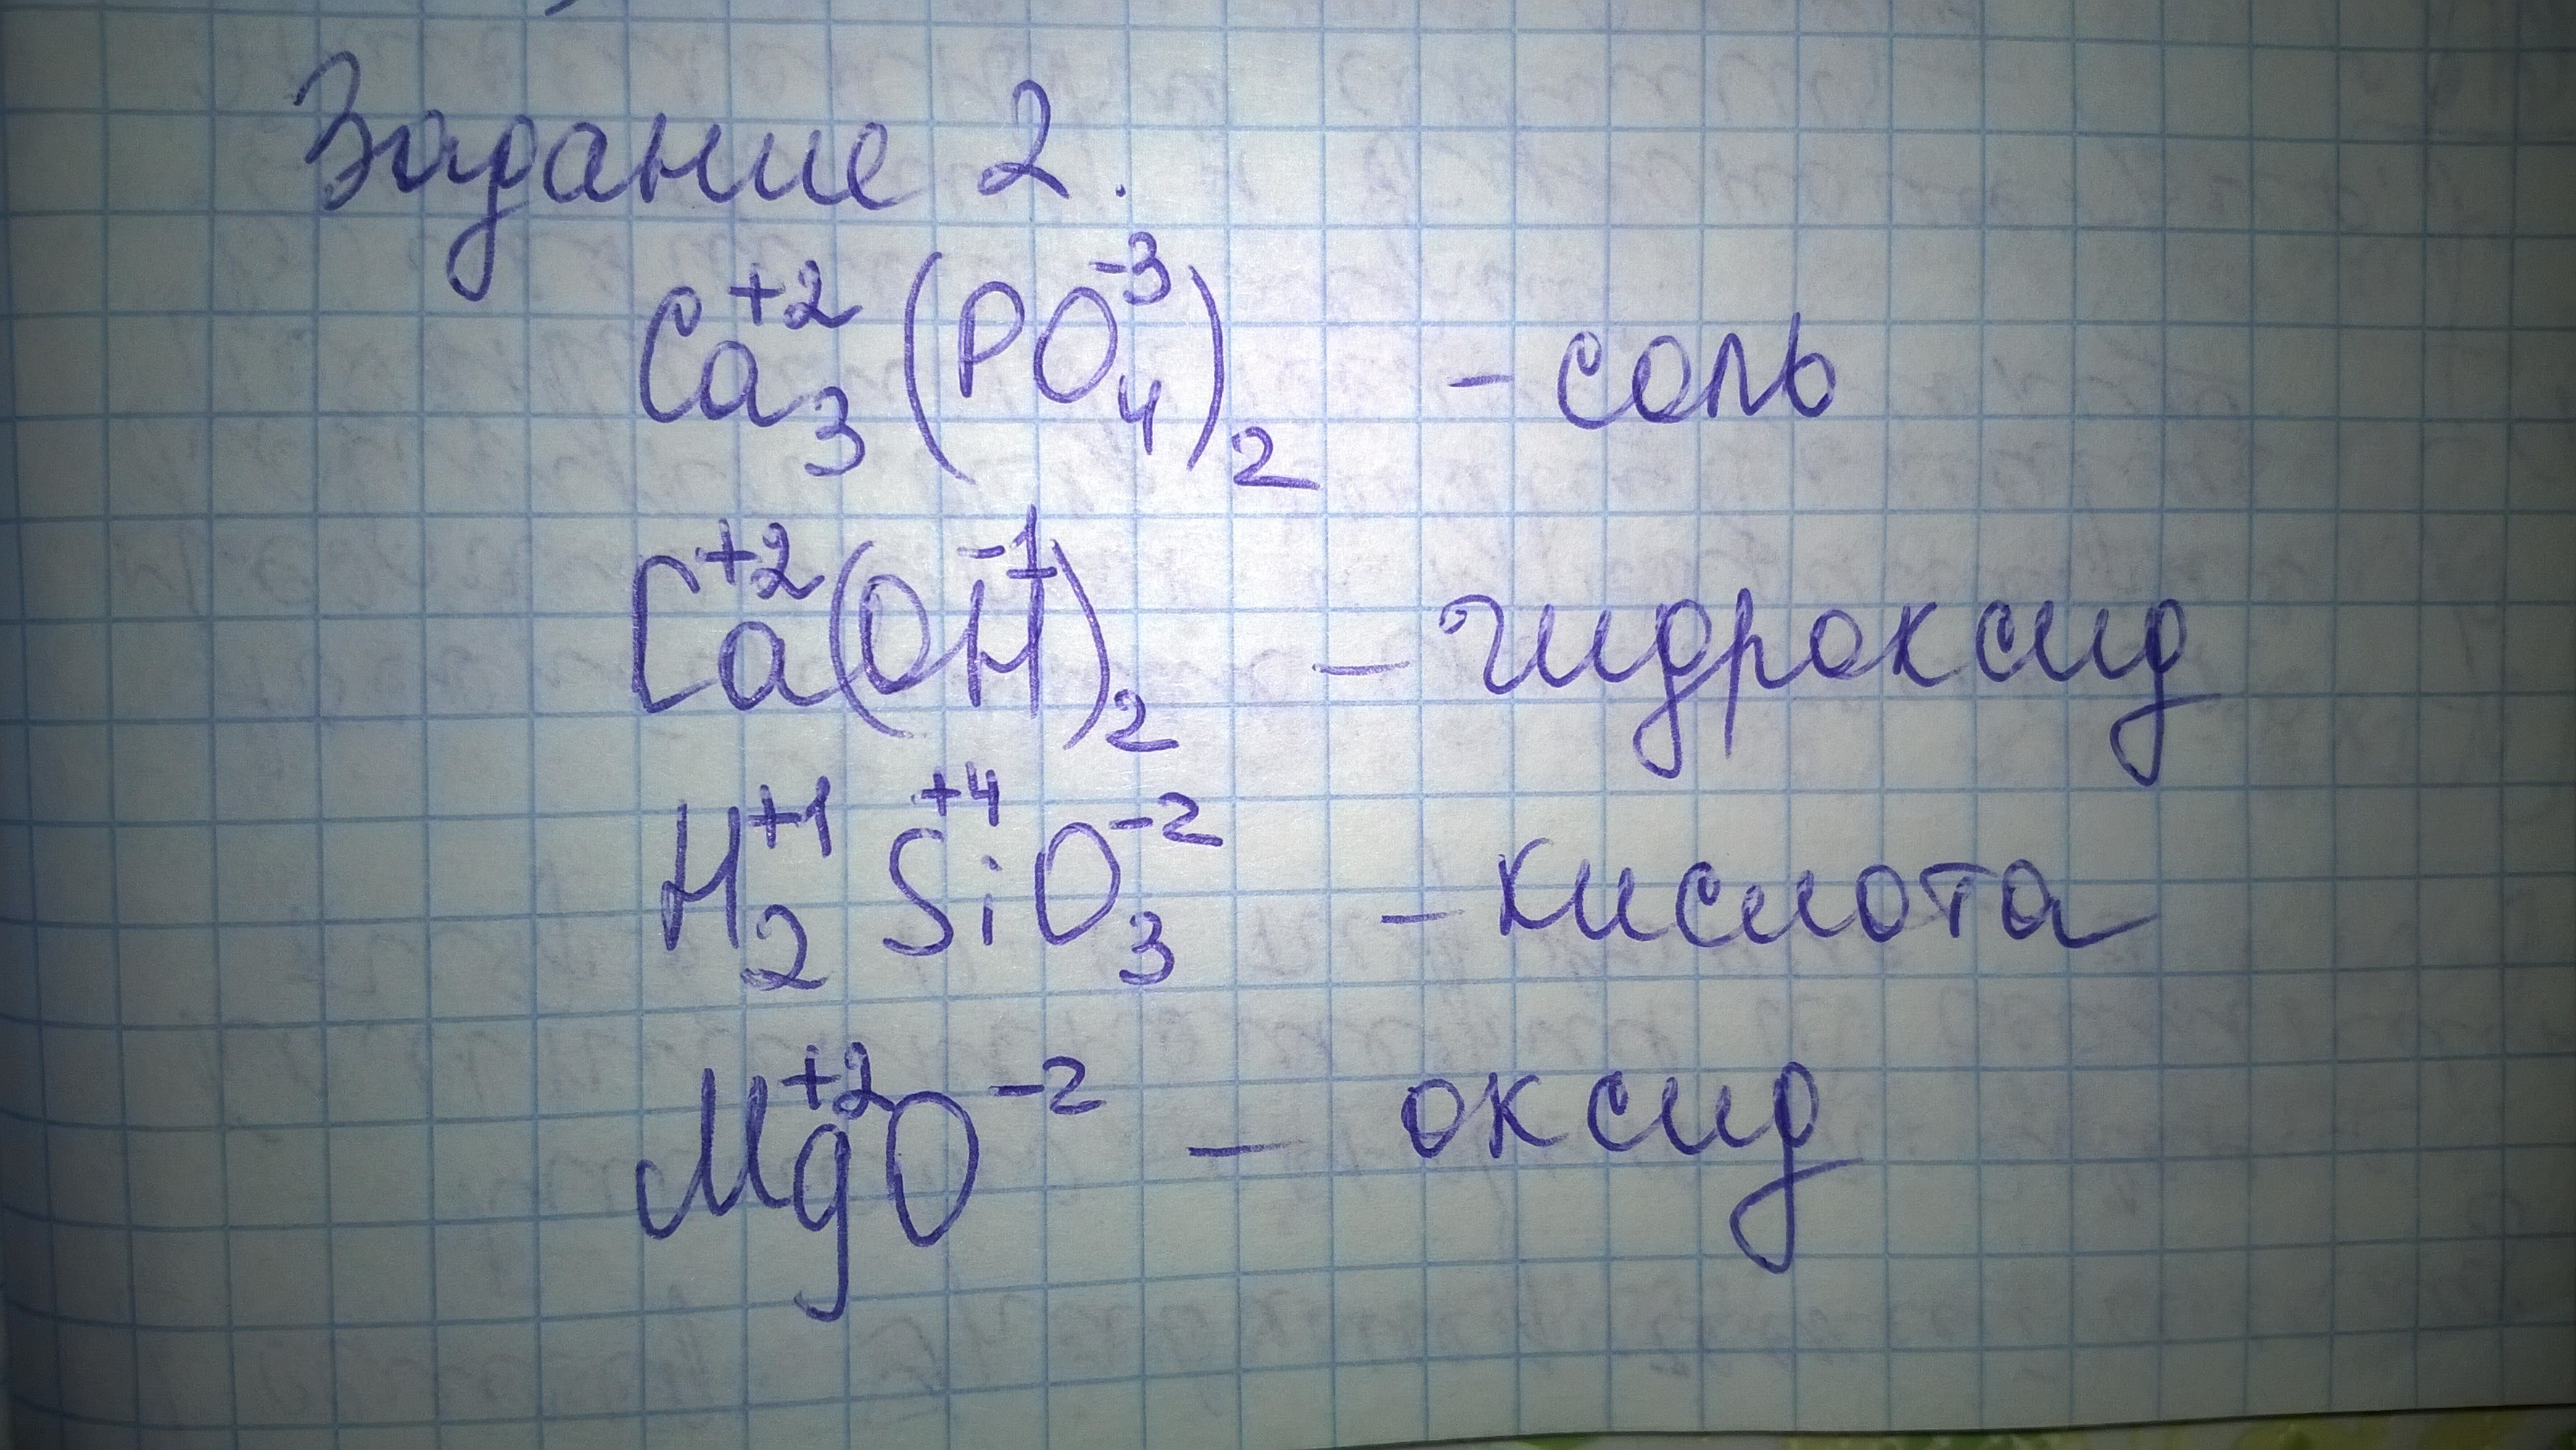 Задание 2.
Ca₃⁺²(PO₄⁻³)₂ - соль
Ca⁺²(OH⁻¹)₂ - гидроксид
H₂⁺¹Si⁺⁴O₃⁻² - кислота
Mg⁺²O⁻² - оксид